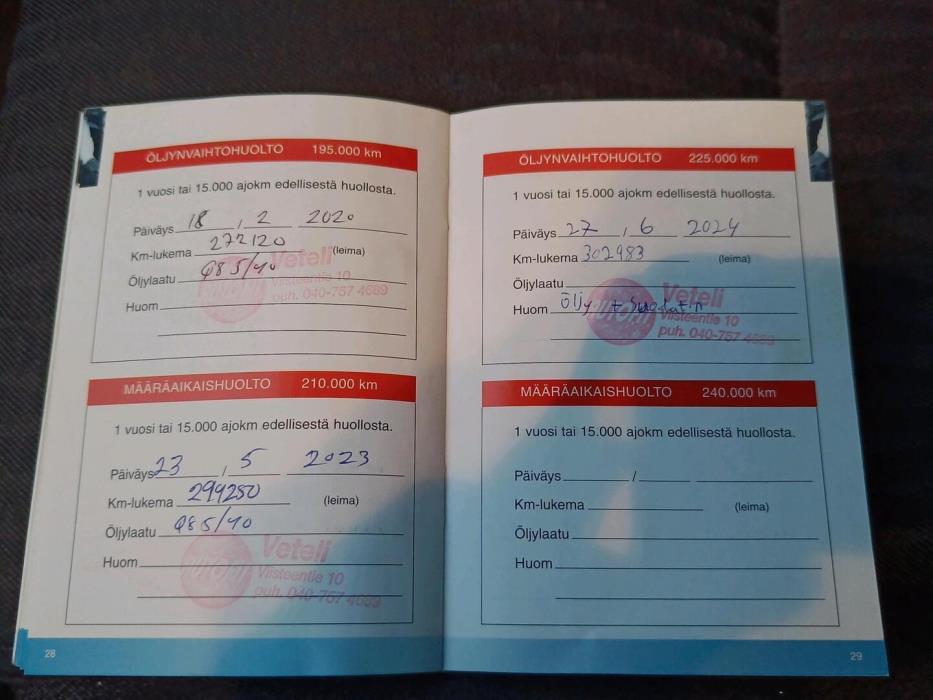 ÖLJYNVAIHTOHUOLTO 195.000 km
1 vuosi tai 15.000 ajokm edellisestä huollosta.
Päiväys 18 , 2 2020
Km-lukema 272120 (leima)
Öljylaatu Q8 5/40
Huom
Veteli
Viisteentie 10
puh. 040-757 4689
MÄÄRÄAIKAISHUOLTO 210.000 km
1 vuosi tai 15.000 ajokm edellisestä huollosta.
Päiväys 23 , 5 2023
Km-lukema 299280 (leima)
Öljylaatu Q8 5/40
Huom
Veteli
Viisteentie 10
puh. 040-757 4689
28
ÖLJYNVAIHTOHUOLTO 225.000 km
1 vuosi tai 15.000 ajokm edellisestä huollosta.
Päiväys 27 , 6 2024
Km-lukema 302983 (leima)
Öljylaatu
Huom Öljy + Suodatin
Veteli
Viisteentie 10
puh. 040-757 4689
MÄÄRÄAIKAISHUOLTO 240.000 km
1 vuosi tai 15.000 ajokm edellisestä huollosta.
Päiväys /
Km-lukema (leima)
Öljylaatu
Huom
29